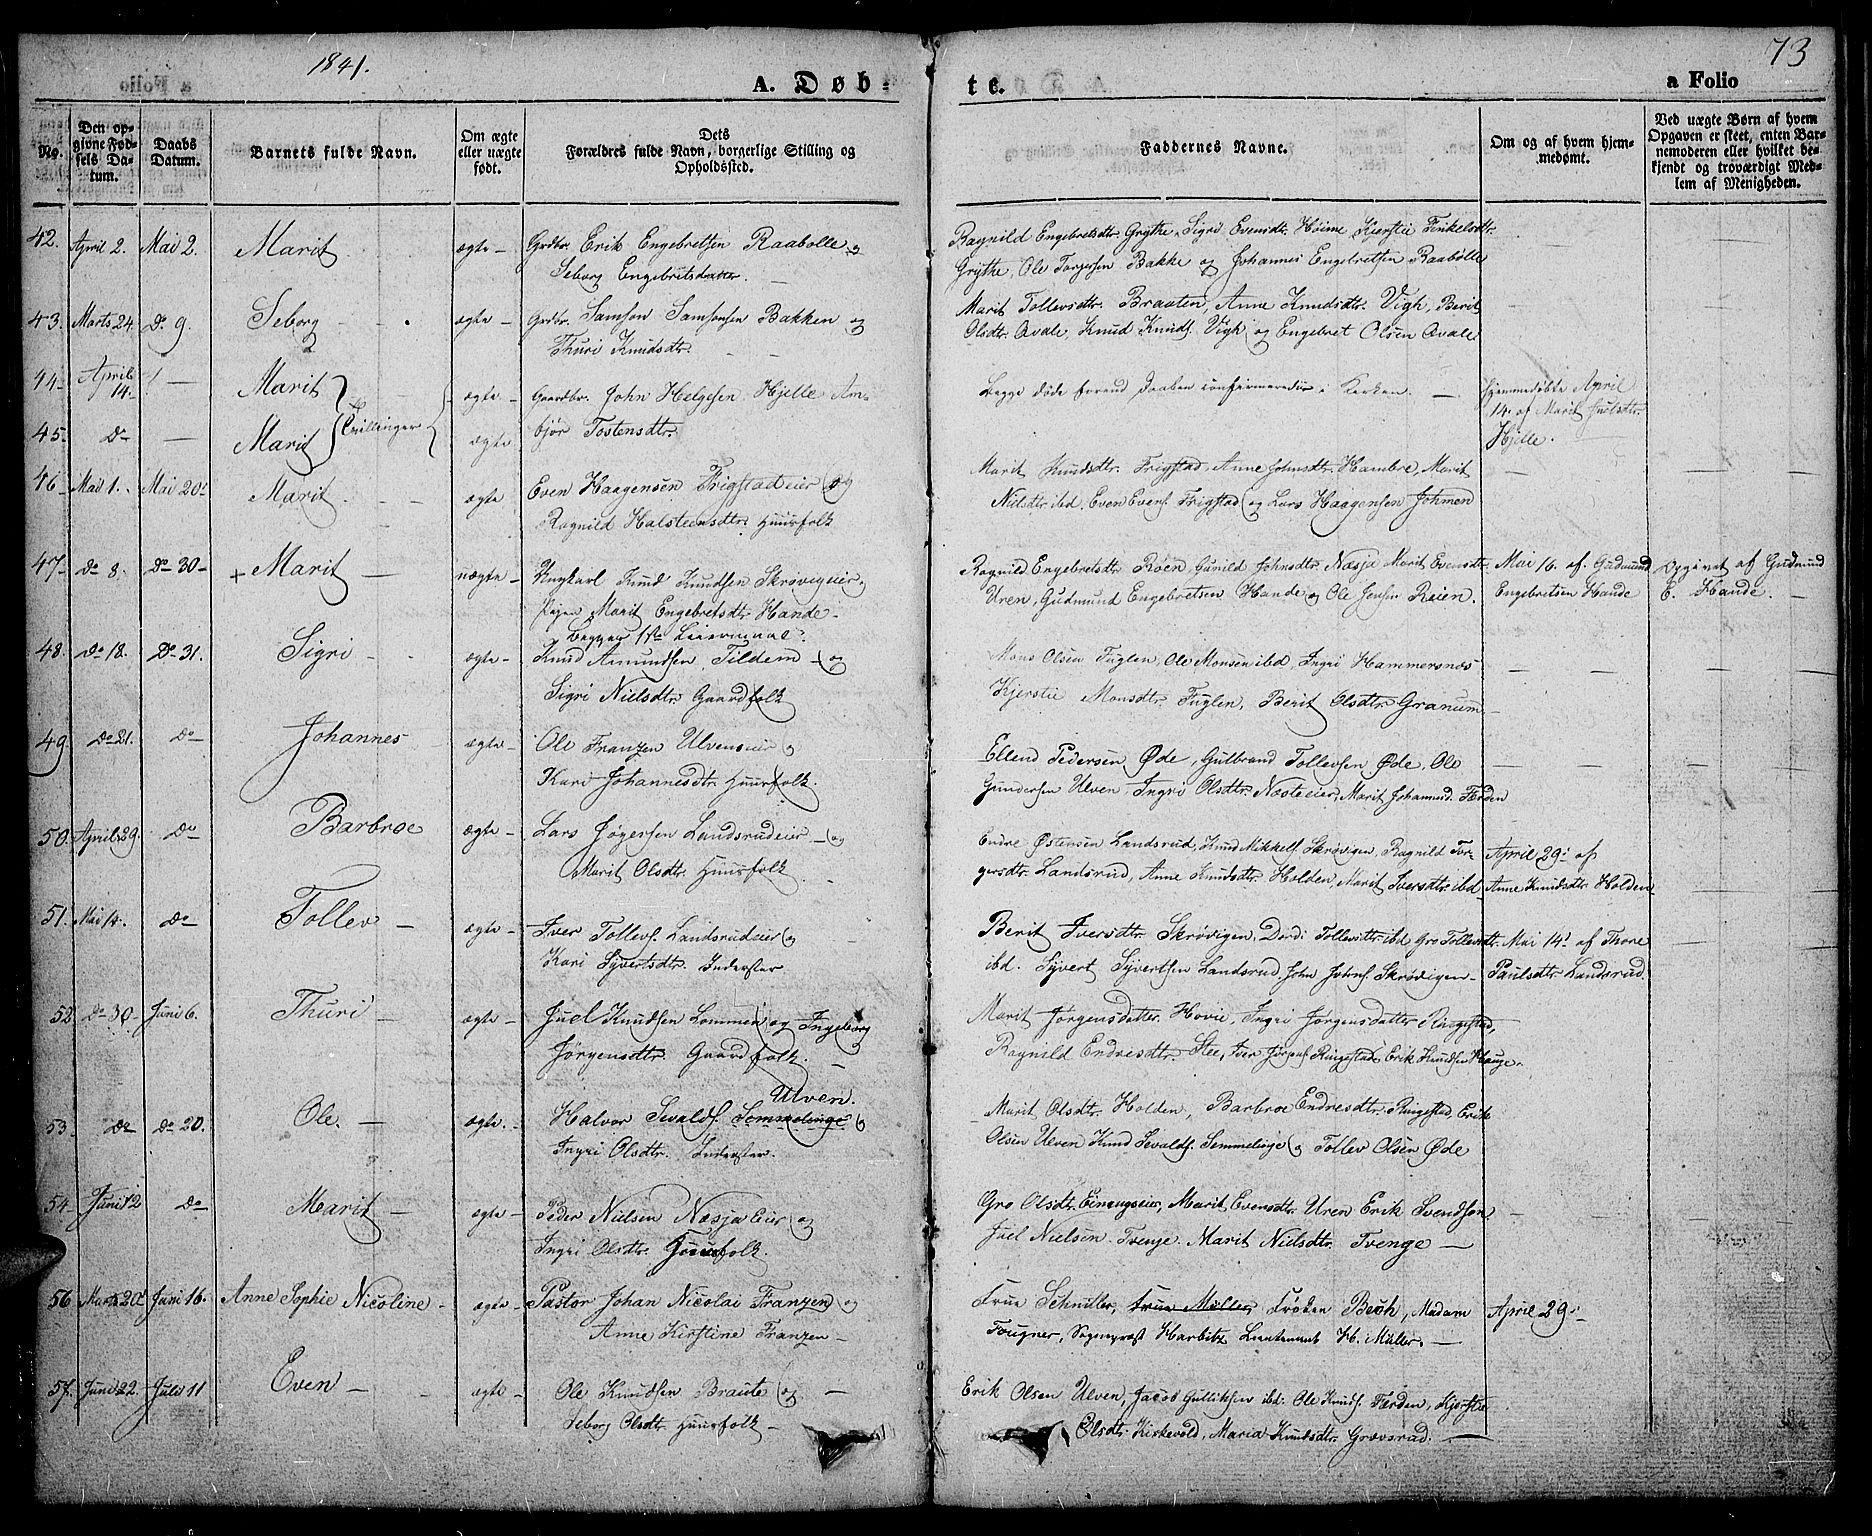 1841.
73
A. Døb-
te.
a Folio
No.
Den op-
givne Fød-
sels Da-
tum.
Daabs
Datum.
Barnets fulde Navn.
Om ægte
eller uægte
født.
Dets
Forældres fulde Navn, borgerlige Stilling og
Opholdssted.
Faddernes Navne.
Om og af hvem hjem-
medøbt.
Ved uægte Børn af hvem
Opgaven er skeet, enten Bar-
nemoderen eller hvilket be-
kjendt og troværdigt Med-
lem af Menigheden.
42. April 2. Mai 2. Marit ægte Grdbr. Erik Engebretsen Raabølle og
Seborg Engebretsdatter
Ragnild Engebretsdtr. Grythe, Sigri Evensdt. Høime, Kjerstie Finkelsdtr.
Grythe, Ole Torgersen Bakke og Johannes Engebretsen Raabølle
43. Marts 24 Do 9. Seborg ægte Grdbr. Samson Samsonsen Bakken og
Thuri Knudsdtr.
Marit Tollevsdtr. Braaten, Anne Knudsdtr. Vigh, Berit
Olsdtr. Qvale, Knud Knuds. Vigh og Engebret Olsen Qvale
44 April 14. Marit ægte Gaardbr. John Helgesen Hjelle Am-
Trillinger
45. Do Marit ægte bjør Tostensdtr.
Begge døde forend Daaben confirmeredes i Kirken.
Hjemmedøbte April
14. af Marit Juelsdtr.
Hjelle.
46 Mai 1. Mai 20. Marit ægte Even Haagensen Frigstadeier og
Ragnild Halsteensdtr. Huusfolk
Marit Knudsdtr. Frigstad, Anne Johnsdtr. Hambre, Marit
Nielsdtr ibd, Even Evens. Frigstad og Lars Haagensen Johmen
47 Do 8. Do 30 + Marit uægte Ungkarl Knud Knudsen Skrøvigeier,
Pigen Marit Engebretsdtr. Hande.
begges 1ste Leiermaal.
Ragnild Engebretsdtr Røen Gunild Johnsdtr Næsja Marit Evensdtr
Uren, Gudmund Engebretsen Hande og Ole Jensen Reien.
Mai 16. af Gudmund
Engebretsen Hande
Opgivet af Gudmund
E. Hande.
48. Do 18. Do 31. Sigri ægte Knud Amundsen Tildem og
Sigri Nielsdtr. Gaardfolk
Mons Olsen Fuglen, Ole Monsen ibd, Ingri Hammersnes
Kjerstie Monsdtr Fuglen, Berit Olsdtr Granum
49 Do 21. Do Johannes ægte Ole Franzen Ulvenseier og
Kari Johannesdtr. Huusfolk.
Ellend Pedersen Øde, Gulbrand Tollevsen Øde, Ole
Gundersen Ulven, Ingri Olsdtr. Næsteeier, Marit Johannesd. Ferden
50. April 29. Do Barbroe ægte Lars Jøgersen Landsrudeier og
Marit Olsdtr. Huusfolk
Endre Østensen Landsrud, Knud Mikkels. Skrøvigen, Ragnild Tor-
gersdtr. Landsrud, Anne Knudsdtr. Holden, Marit Iversdtr. ibd.
April 29. af
Anne Knudsdtr. Holden
51. Mai 14. Do Tollev ægte Iver Tollevs. Landsrudeier og
Kari Syvertsdtr. Inderster
Berit Iversdtr. Skrøvigen, Dordi Tollevsdtr. ibd Gro Tollevsdtr.
ibd. Syvert Syvertsen Landsrud, John Johns. Skrøvigen
Mai 14. af Thore
Paulsdtr. Landsrud
52. Do 30 Juni 6. Thuri ægte Juel Knudsen Lommen og Ingeborg
Jørgensdtr. Gaardfolk.
Marit Jørgensdatter Hovie, Ingri Jørgensdatter Ringestad,
Ragnild Endresdtr. Stee, Iver Jørgens. Ringestad, Erik Knudsen Hauge.
53. Do Do 20. Ole. ægte. Ulven.
Halvor Sevalds. Semmelenge og
Ingri Olsdtr. Inderster.
Marit Olsdtr. Holden, Barbroe Endresdtr. Ringestad, Erik
Olsen Ulven Knud Sevalds. Semmelenge og Tollev Olsen Øde
54. Juni 12 Do Marit ægte Peder Nielsen Næsja Eier og
Ingri Olsdtr. Huusfolk.
Gro Olsdtr. Einangseier, Marit Evensdtr. Uren Erik Svendsen
Juel Nielsen Tvenge. Marit Nielsdtr. Tvenge
56 Marts 20. Juni 16. Anne Sophie Nicoline ægte Pastor Johan Nicolai Franzen og
Anne Kirstine Franzen
Frue Schniller, Frue Müller Frøken Bech, Madam
Fougner, Sogneprest Harbitz Lieutenant H. Müller.
April 29.
57. Juni 22. Juli 11 Even ægte Ole Knudsen Braute og
Seborg Olsdtr. Huusfolk
Erik Olsen Ulven, Jacob Gulliksen ibd. Ole Knuds. Ferden, Kjerstie
Olsdtr. Kirkevold, Maria Knudsdtr. Grøvsrad.